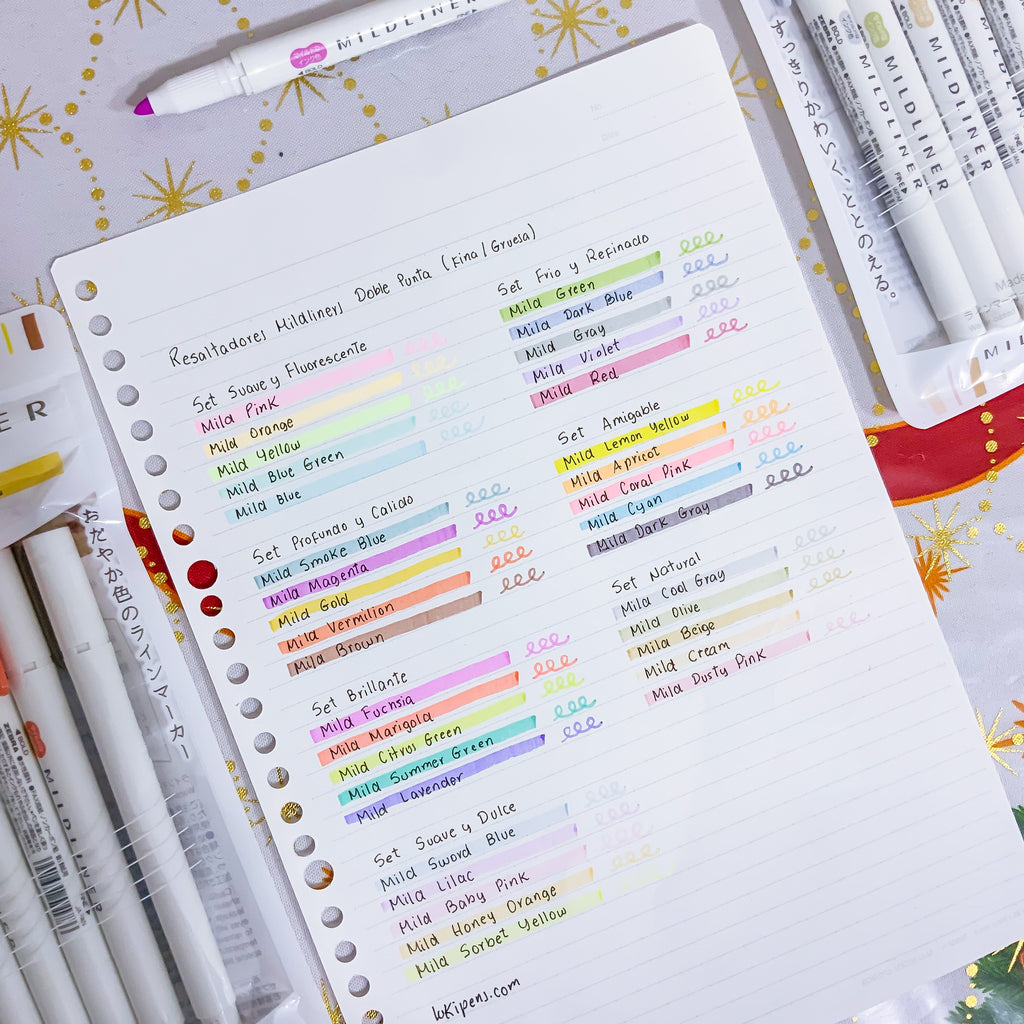 MILDLINER
BOLD
No.
Date
Resaltadores Mildliners Doble Punta (Fina / Gruesa)
Set Suave y Fluorescente
Mild Pink
Mild Orange
Mild Yellow
Mild Blue Green
Mild Blue
Set Profundo y Calido
Mild Smoke Blue
Mild Magenta
Mild Gold
Mild Vermilion
Mild Brown
Set Brillante
Mild Fuchsia
Mild Marigold
Mild Citrus Green
Mild Summer Green
Mild Lavender
Set Suave y Dulce
Mild Sword Blue
Mild Lilac
Mild Baby Pink
Mild Honey Orange
Mild Sorbet Yellow
lukipens.com
Set Frio y Refinado
Mild Green
Mild Dark Blue
Mild Gray
Mild Violet
Mild Red
Set Amigable
Mild Lemon Yellow
Mild Apricot
Mild Coral Pink
Mild Cyan
Mild Dark Gray
Set Natural
Mild Cool Gray
Mild Olive
Mild Beige
Mild Cream
Mild Dusty Pink
すっきりかわいく、ととのえる。
BOLD ZEBRA MILDLINER FINE
MILDLINER FINE
MILDLINER
MILDLINER
Made
MIL
ER
おだやか色のラインマーカー
BOLD ZEBRA MILDLINER